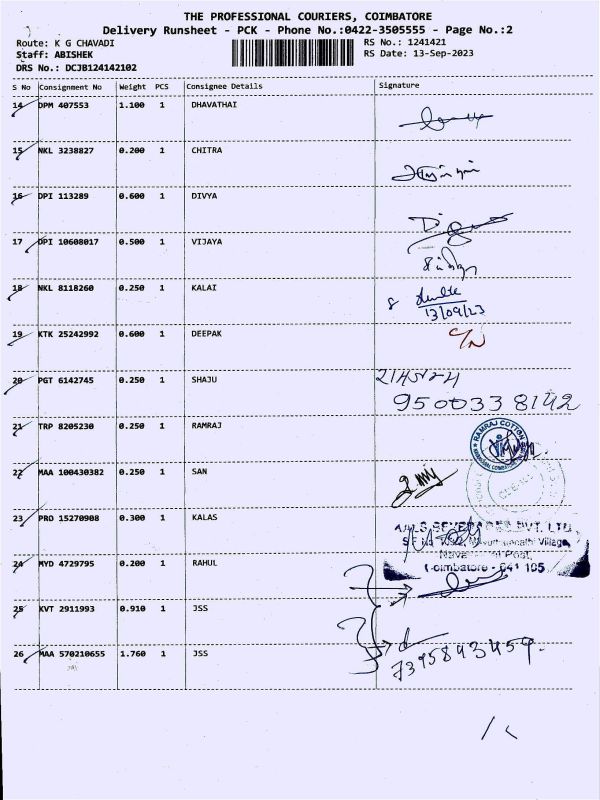 THE PROFESSIONAL COURIERS, COIMBATORE
Delivery Runsheet - PCK - Phone No.:0422-3505555 - Page No.:2
Route: K G CHAVADI
Staff: ABISHEK
DRS No.: DCJB124142102
RS No.: 1241421
RS Date: 13-Sep-2023
S No Consignment No Weight PCS Consignee Details Signature
14 DPM 407553 1.100 1 DHAVATHAI
15 NKL 3238827 0.200 1 CHITRA
16 DPI 113289 0.600 1 DIVYA
17 DPI 10608017 0.500 1 VIJAYA
18 NKL 8118260 0.250 1 KALAI
13/09/23
19 KTK 25242992 0.600 1 DEEPAK
C/N
20 PGT 6142745 0.250 1 SHAJU
9500338142
21 TRP 8205230 0.250 1 RAMRAJ
RAMRAJ COTTON
22 MAA 100430382 0.250 1 SAN
23 PRO 15270908 0.300 1 KALAS
PVT. LTD
Village
Post,
Coimbatore - 641 105
24 MYD 4729795 0.200 1 RAHUL
25 KVT 2911993 0.910 1 JSS
26 MAA 570210655 1.760 1 JSS
7395843459.